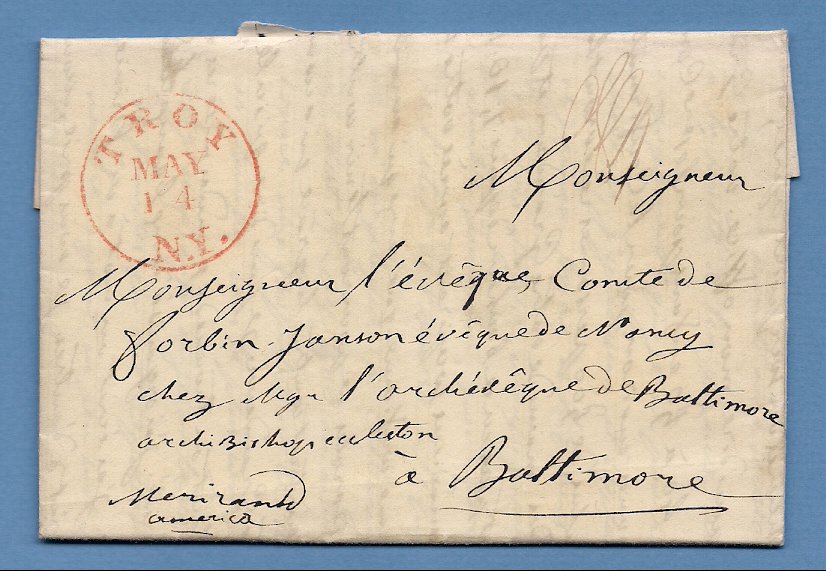 TROY
MAY
14
N.Y.
Monseigneur
Monseigneur l'évêque, Comte de
forbin-Janson évêque de Nancy
chez Mgr l'archévêque de Baltimore
archiBishop eccleston
à Baltimore
Meriland
america